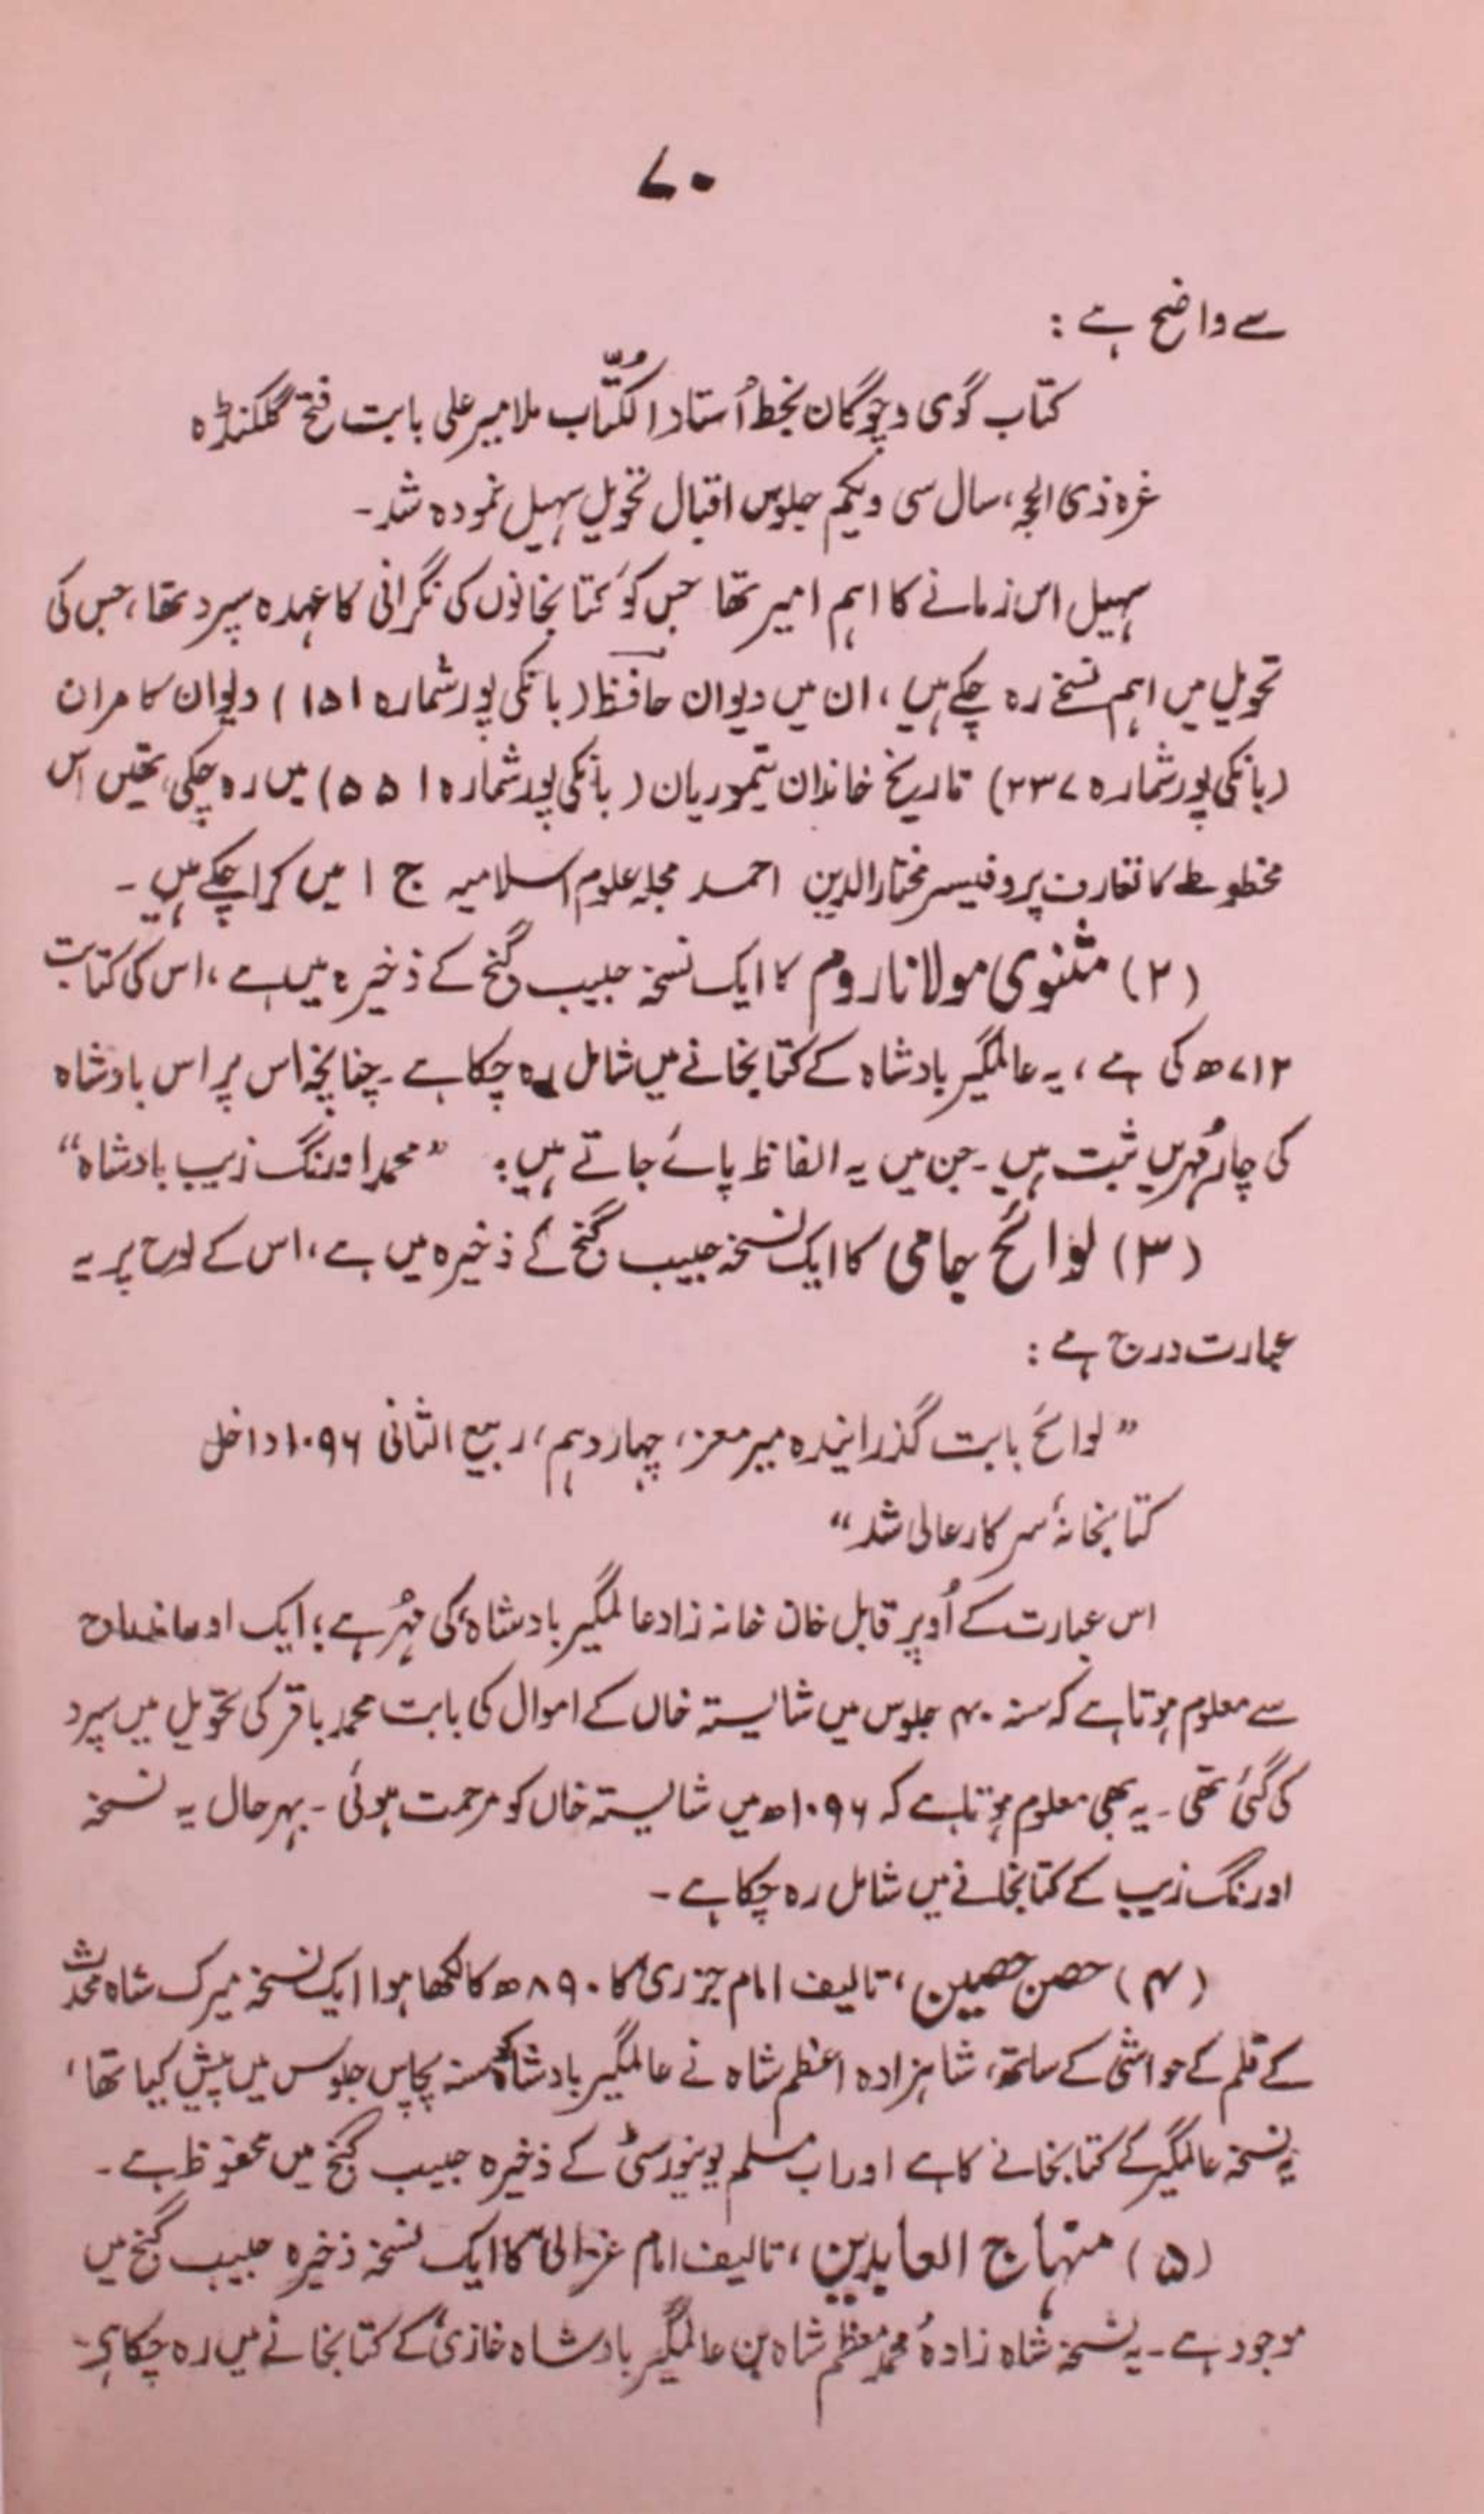 ۷۰
سے واضح ہے :
کتاب گوی و چوگان بخط اُستاد الکُتّاب ملا میر علی بابت فتح گلکنڈہ
غرہ ذی الحجہ، سال سی ویکم جلوس اقبال تحویل سہیل نمودہ شد۔
سہیل اس زمانے کا اہم امیر تھا جس کو کتابخانوں کی نگرانی کا عہدہ سپرد تھا، جس کی
تحویل میں اہم نسخے رہ چکے ہیں، ان میں دیوان حافظ (بانکی پور شمارہ ۱۵۱) دیوان کامران
(بانکی پور شمارہ ۲۳۷) تاریخ خاندان تیموریان (بانکی پور شمارہ ۵۵۱) میں رہ چکی تھیں اس
مخطوطے کا تعارف پروفیسر مختارالدین احمد مجلہ علوم اسلامیہ ج ۱ میں کرا چکے ہیں۔
(۲) مثنوی مولانا روم کا ایک نسخہ حبیب گنج کے ذخیرہ میں ہے، اس کی کتابت
۷۱۲ھ کی ہے، یہ عالمگیر بادشاہ کے کتابخانے میں شامل رہ چکا ہے۔ چنانچہ اس پر اس بادشاہ
کی چار مُہریں ثبت ہیں۔ جن میں یہ الفاظ پائے جاتے ہیں: ”محمد اورنگ زیب بادشاہ“
(۳) لوائح جامی کا ایک نسخہ حبیب گنج کے ذخیرہ میں ہے، اس کے لوح پر یہ
عبارت درج ہے :
”لوائح بابت گذرانیدہ میر معز، چہاردہم، ربیع الثانی ۱۰۹۶ داخل
کتابخانۂ سرکار عالی شد“
اس عبارت کے اُوپر قابل خان خانہ زاد عالمگیر بادشاہ کی مُہر ہے؛ ایک اور
سے معلوم ہوتا ہے کہ سنہ ۴۰ جلوس میں شایستہ خاں کے اموال کی بابت محمد باقر کی تحویل میں سپرد
کی گئی تھی۔ یہ بھی معلوم ہوتا ہے کہ ۱۰۹۶ھ میں شایستہ خاں کو مرحمت ہوئی۔ بہرحال یہ نسخہ
اورنگ زیب کے کتابخانے میں شامل رہ چکا ہے۔
(۴) حصن حصین، تالیف امام جزری کا ۸۹۰ھ کا لکھا ہوا ایک نسخہ میرک شاہ محدث
کے قلم کے حواشی کے ساتھ، شاہزادہ اعظم شاہ نے عالمگیر بادشاہ کو سنہ پچاس جلوس میں پیش کیا تھا،
یہ نسخہ عالمگیر کے کتابخانے کا ہے اور اب مسلم یونیورسٹی کے ذخیرہ حبیب گنج میں محفوظ ہے۔
(۵) منہاج العابدین، تالیف امام غزالی کا ایک نسخہ ذخیرہ حبیب گنج میں
موجود ہے۔ یہ نسخہ شاہ زادہ محمد معظم شاہ بن عالمگیر بادشاہ غازی کے کتابخانے میں رہ چکا ہے۔